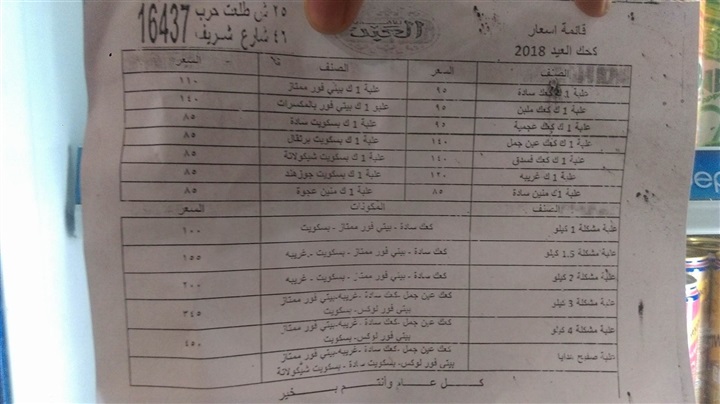 قائمة اسعار
كحك العيد 2018
العبد
٢٥ ش طلعت حرب
٤٦ شارع شريف
16437
الصنف السعر الصنف السعر
علبة 1 ك كعك سادة ٩٥ علبة 1 ك بيتي فور ممتاز ١١٠
علبة 1 ك كعك ملبن ٩٥ علبة 1 ك بيتي فور بالمكسرات ١٤٠
علبة 1 ك كعك عجمية ٩٥ علبة 1 ك بسكويت سادة ٨٥
علبة 1 ك كعك عين جمل ١٤٠ علبة 1 ك بسكويت برتقال ٨٥
علبة 1 ك كعك فسدق ١٤٠ علبة 1 ك بسكويت شيكولاتة ٨٥
علبة 1 ك غريبه ١٢٠ علبة 1 ك بسكويت جوزهند ٨٥
علبة 1 ك منين سادة ٨٥ علبة 1 ك منين عجوة ٨٥
الصنف المكونات السعر
علبة مشكلة 1 كيلو كعك سادة - بيتي فور ممتاز - بسكويت ١٠٠
علبة مشكلة 1.5 كيلو كعك سادة - بيتي فور ممتاز - بسكويت - غريبه ١٥٥
علبة مشكلة 2 كيلو كعك سادة - بيتي فور ممتاز - بسكويت - غريبه ٢٠٠
علبة مشكلة 3 كيلو كعك عين جمل -كعك سادة -غريبه-بيتي فور ممتاز ٣٤٥
بيتي فور لوكس- بسكويت
علبة مشكلة 4 كيلو كعك عين جمل -كعك سادة -غريبه-بيتي فور ممتاز ٤٥٠
بيتي فور لوكس- بسكويت
علبة صفيح هدايا كعك عين جمل -كعك سادة -غريبه-بيتي فور ممتاز
بيتي فور لوكس- بسكويت سادة - بسكويت شيكولاتة
كـــل عـــام وأنتـــم بـــخير